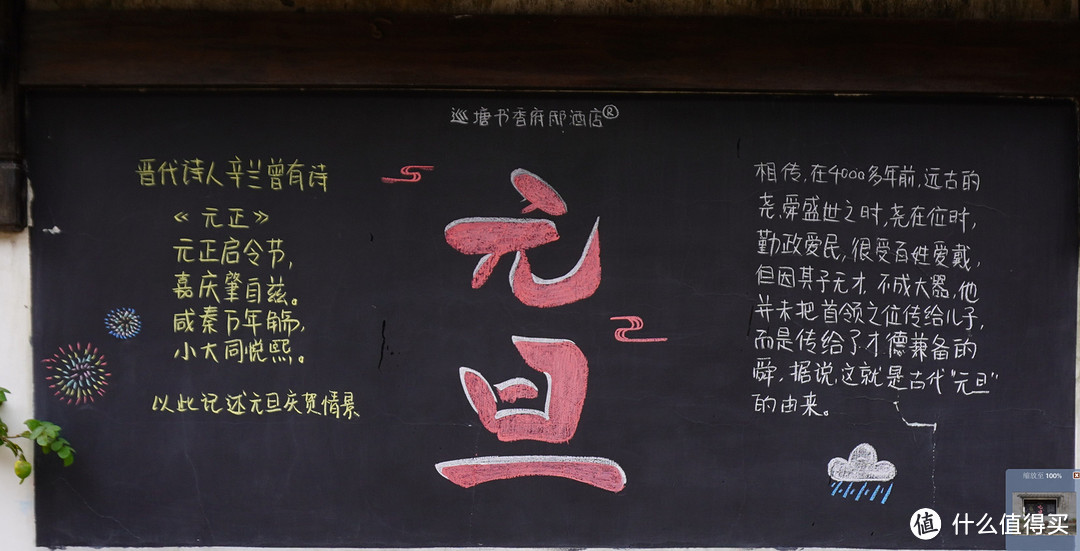 巡塘书香府邸酒店®
晋代诗人辛兰曾有诗
《元正》
元正启令节,
嘉庆肇自兹。
咸秦万年觞,
小大同悦熙。
以此记述元旦庆贺情景
元
旦
相传,在4000多年前,远古的
尧、舜盛世之时,尧在位时,
勤政爱民,很受百姓爱戴,
但因其子无才,不成大器,他
并未把首领之位传给儿子,
而是传给了才德兼备的
舜,据说,这就是古代"元旦"
的由来。
缩放至 100%
值 什么值得买